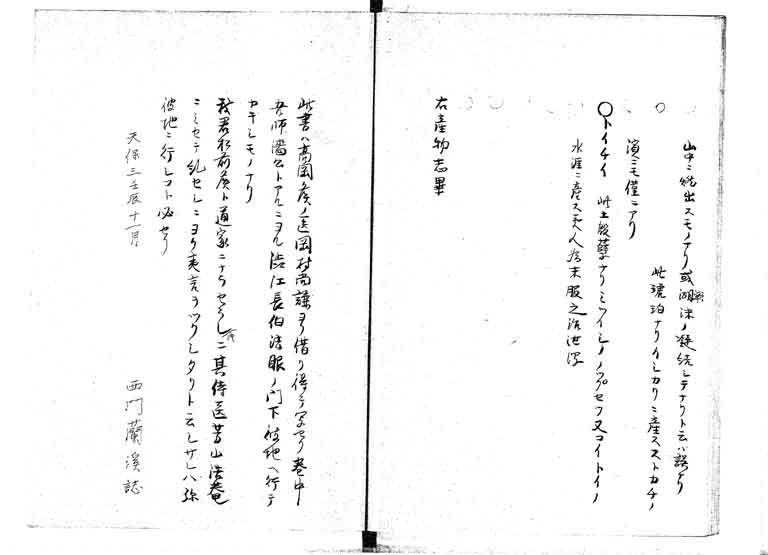 山中ニ焼出スモノナリ或湖沫ノ凝結シテナリト云ハ誤ナリ
○ 此琥珀ナリイシカリニ産スストカチノ
濱ニモ僅ニアリ
○トイチイ 此土殷孽ナリミツイシノノブセフ又コイトイノ
水涯ニ産ス夷人為末服之治泄瀉
右產物志畢
此書ハ髙岡侯ノ医岡村尚謙ヨリ借リ得テ写セリ巻中
吾師トアルニヨレハ渋江長伯法眼ノ門下彼地ヘ行テ
カキシモノナリ
我君松前侯ト道家ニナラセ其侍医菅山浩菴
ニミセテ乱セシニヨク夷言ヲツクシタリト云シサレハ弥
彼地ニ行シコト必セリ
天保三壬辰十一月
西門蘭溪誌